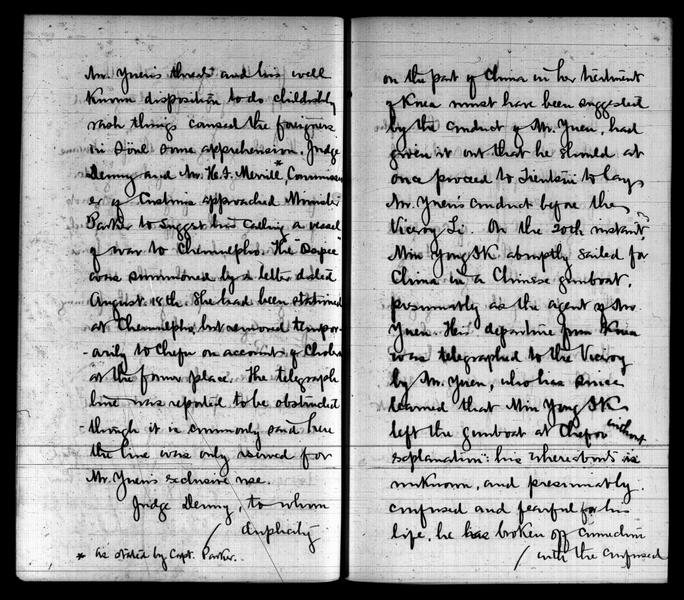 Mr. Yuen's threat and his well
known disposition to do childishly
rash things caused the foreigners
in Söul some apprehension. Judge
Denny and Mr. H. F. Merrill*, Commission-
er of Customs approached Minister
Parker to suggest his calling a vessel
of war to Chemulpho. The "Ossipee"
was summoned by a letter dated
August 18th. She had been stationed
at Chemulpho, but removed tempor-
-arily to Chefu on account of Cholera
at the former place. The telegraph
line was reported to be obstructed
though it is commonly said here
the line was only reserved for
Mr. Yuen's exclusive use.
Judge Denny, to whom
/ duplicity
* as stated by Capt. Parker.
on the part of China in her treatment
of Korea must have been suggested
by the conduct of Mr. Yuen, had
given it out that he should at
once proceed to Tientsin to lay
Mr. Yuen's conduct before the
Viceroy Li. On the 20th instant,
Min Yong IK abruptly sailed for
China in a Chinese gunboat,
presumably as the agent of Mr.
Yuen. His departure from Korea
was telegraphed to the Viceroy
by Mr. Yuen, who has since
learned that Min Yong IK
left the gunboat at Chefoo without
explanation: his whereabouts is
unknown, and presumably
confused and fearful for his
life, he has broken off connection
/ with the confused